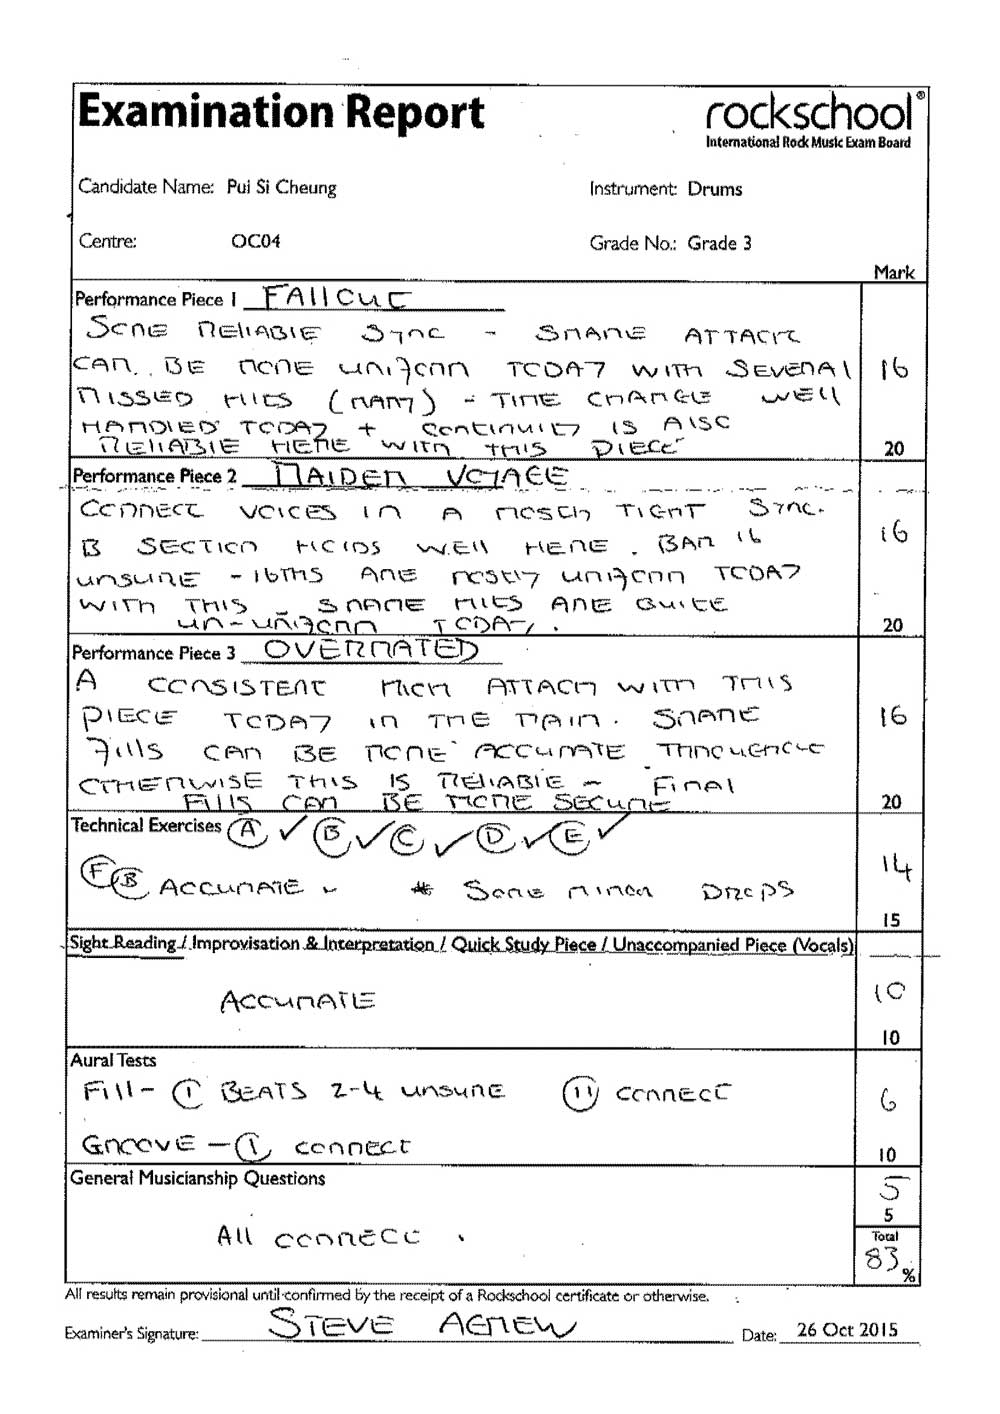 Examination Report
rockschool®
International Rock Music Exam Board
Candidate Name: Pui Si Cheung
Instrument: Drums
Centre: OC04
Grade No.: Grade 3
Mark
Performance Piece 1 FAllOUT
SOME RElIABlE SYNC - SNARE ATTACK
CAN BE MORE UNIFORM TODAY WITH SEVERAl 16
MISSED HITS (MANY) - TIME CHANGE WEll
HANDlED TODAY + CONTINUITY IS AlSO
RElIABlE HERE WITH THIS PIECE 20
Performance Piece 2 MAIDEN VOYAGE
CORRECT VOICES IN A MOSTlY TIGHT SYNC.
B SECTION HOlDS WEll HERE. BAR 16 16
UNSURE - 16THS ARE MOSTlY UNIFORM TODAY
WITH THIS - SNARE HITS ARE QUITE
UN-UNIFORM TODAY. 20
Performance Piece 3 OVERRATED
A CONSISTENT HIGH ATTACK WITH THIS
PIECE TODAY IN THE MAIN. SNARE 16
FIllS CAN BE MORE ACCURATE THROUGHOUT
OTHERWISE THIS IS RElIABlE - FINAl
FIllS CAN BE MORE SECURE 20
Technical Exercises A ✓ B ✓ C ✓ D ✓ E ✓
F B ACCURATE * SOME MINOR DROPS 14
15
Sight Reading / Improvisation & Interpretation / Quick Study Piece / Unaccompanied Piece (Vocals)
ACCURATE 10
10
Aural Tests
FIll - (i) BEATS 2-4 UNSURE (ii) CORRECT 6
GROOVE - (i) CORRECT 10
General Musicianship Questions 5
5
All CORRECT. Total
83 %
All results remain provisional until confirmed by the receipt of a Rockschool certificate or otherwise.
Examiner's Signature: STEVE AGNEW Date: 26 Oct 2015